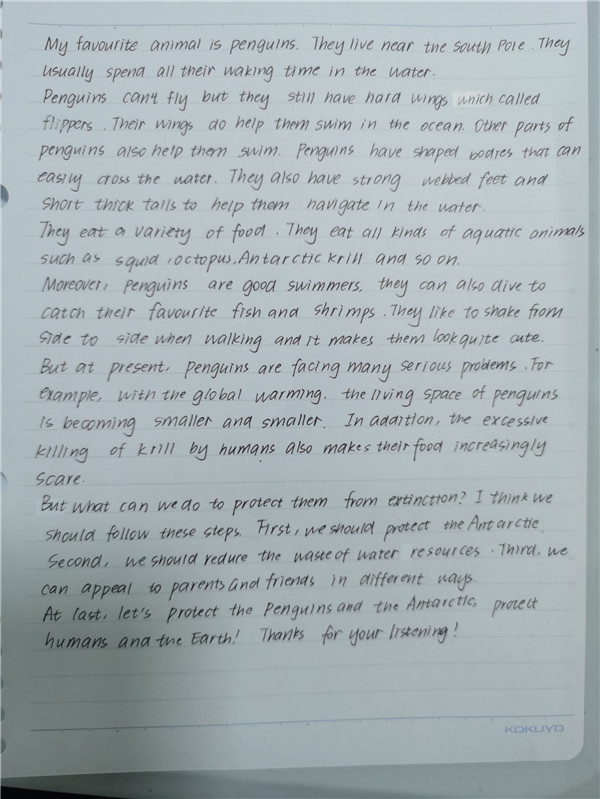 My favourite animal is penguins. They live near the South Pole. They
usually spend all their waking time in the water.
Penguins can't fly but they still have hard wings which called
flippers. Their wings do help them swim in the ocean. Other parts of
penguins also help them swim. Penguins have shaped bodies that can
easily cross the water. They also have strong webbed feet and
short thick tails to help them navigate in the water.
They eat a variety of food. They eat all kinds of aquatic animals
such as squid, octopus, Antarctic krill and so on.
Moreover, Penguins are good swimmers, they can also dive to
catch their favourite fish and shrimps. They like to shake from
side to side when walking and it makes them look quite cute.
But at present, Penguins are facing many serious problems. For
example, with the global warming, the living space of penguins
is becoming smaller and smaller. In addition, the excessive
killing of krill by humans also makes their food increasingly
scare.
But what can we do to protect them from extinction? I think we
should follow these steps. First, we should protect the Antarctic.
Second, we should reduce the waste of water resources. Third, we
can appeal to parents and friends in different ways.
At last, let's protect the Penguins and the Antarctic, protect
humans and the Earth! Thanks for your listening!
KOKUYO